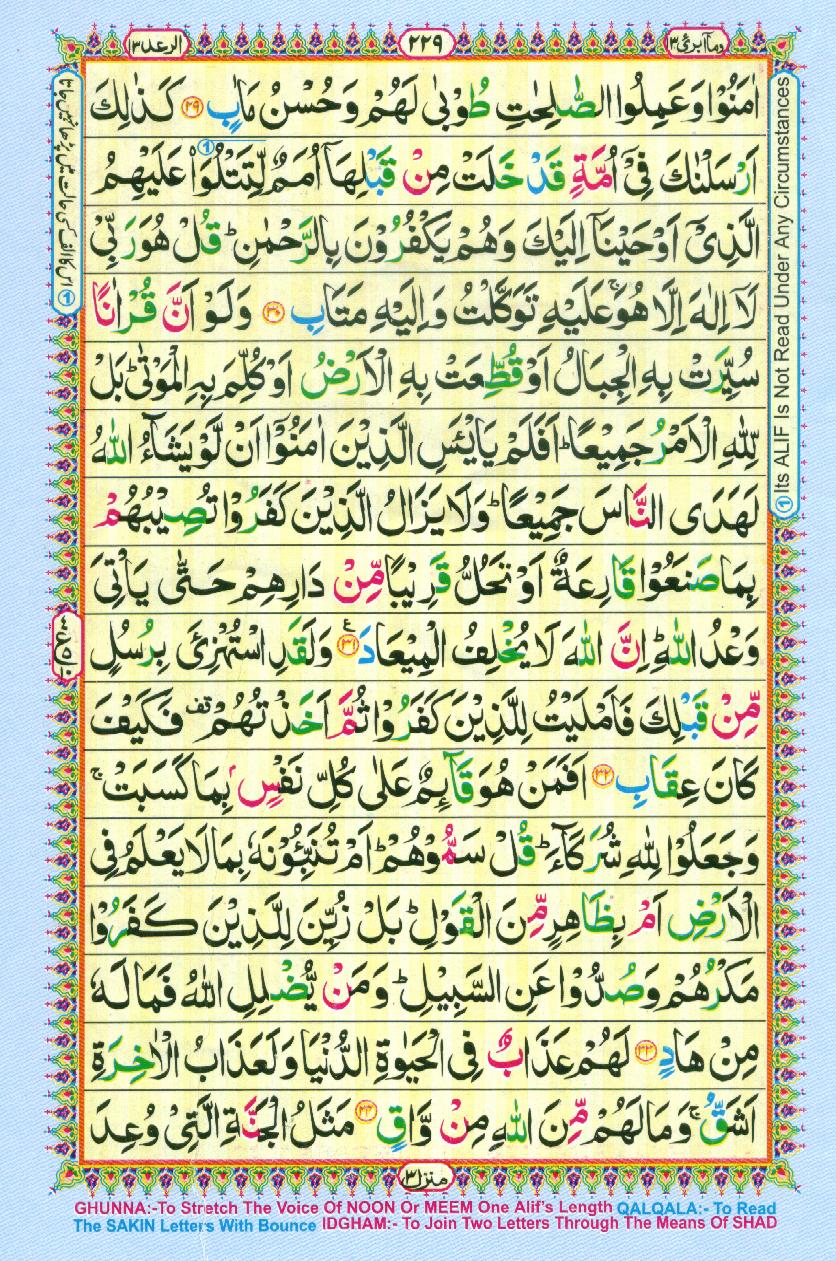 وما ابرئ ١٣
٢٢٩
الرعد ١٣
اٰمَنُوْا وَعَمِلُوا الصّٰلِحٰتِ طُوْبٰى لَهُمْ وَحُسْنُ مَاٰبٍ ﴿۲۹﴾ كَذٰلِكَ
اَرْسَلْنٰكَ فِيْۤ اُمَّةٍ قَدْ خَلَتْ مِنْ قَبْلِهَاۤ اُمَمٌ لِّتَتْلُوَا۟ عَلَيْهِمُ
الَّذِيْۤ اَوْحَيْنَاۤ اِلَيْكَ وَهُمْ يَكْفُرُوْنَ بِالرَّحْمٰنِ ؕ قُلْ هُوَ رَبِّيْ
لَاۤ اِلٰهَ اِلَّا هُوَ ۚ عَلَيْهِ تَوَكَّلْتُ وَاِلَيْهِ مَتَابِ ﴿۳۰﴾ وَلَوْ اَنَّ قُرْاٰنًا
سُيِّرَتْ بِهِ الْجِبَالُ اَوْ قُطِّعَتْ بِهِ الْاَرْضُ اَوْ كُلِّمَ بِهِ الْمَوْتٰى ؕ بَلْ
لِّلّٰهِ الْاَمْرُ جَمِيْعًا ؕ اَفَلَمْ يَايْـَٔسِ الَّذِيْنَ اٰمَنُوْۤا اَنْ لَّوْ يَشَآءُ اللّٰهُ
لَهَدَى النَّاسَ جَمِيْعًا ؕ وَلَا يَزَالُ الَّذِيْنَ كَفَرُوْا تُصِيْبُهُمْ
بِمَا صَنَعُوْا قَارِعَةٌ اَوْ تَحُلُّ قَرِيْبًا مِّنْ دَارِهِمْ حَتّٰى يَاْتِيَ
وَعْدُ اللّٰهِ ؕ اِنَّ اللّٰهَ لَا يُخْلِفُ الْمِيْعَادَ ﴿۳۱﴾ وَلَقَدِ اسْتُهْزِئَ بِرُسُلٍ
مِّنْ قَبْلِكَ فَاَمْلَيْتُ لِلَّذِيْنَ كَفَرُوْا ثُمَّ اَخَذْتُهُمْ قف فَكَيْفَ
كَانَ عِقَابِ ﴿۳۲﴾ اَفَمَنْ هُوَ قَآئِمٌ عَلٰى كُلِّ نَفْسٍۭ بِمَا كَسَبَتْ ۚ
وَجَعَلُوْا لِلّٰهِ شُرَكَآءَ ؕ قُلْ سَمُّوْهُمْ ؕ اَمْ تُنَبِّـُٔوْنَهٗ بِمَا لَا يَعْلَمُ فِي
الْاَرْضِ اَمْ بِظَاهِرٍ مِّنَ الْقَوْلِ ؕ بَلْ زُيِّنَ لِلَّذِيْنَ كَفَرُوْا
مَكْرُهُمْ وَصُدُّوْا عَنِ السَّبِيْلِ ؕ وَمَنْ يُّضْلِلِ اللّٰهُ فَمَا لَهٗ
مِنْ هَادٍ ﴿۳۳﴾ لَهُمْ عَذَابٌ فِي الْحَيٰوةِ الدُّنْيَا وَلَعَذَابُ الْاٰخِرَةِ
اَشَقُّ ۚ وَمَا لَهُمْ مِّنَ اللّٰهِ مِنْ وَّاقٍ ﴿۳۴﴾ مَثَلُ الْجَنَّةِ الَّتِيْ وُعِدَ
منزل ٣
① Its ALIF Is Not Read Under Any Circumstances
GHUNNA:-To Stretch The Voice Of NOON Or MEEM One Alif's Length QALQALA:- To Read
The SAKIN Letters With Bounce IDGHAM:- To Join Two Letters Through The Means Of SHAD